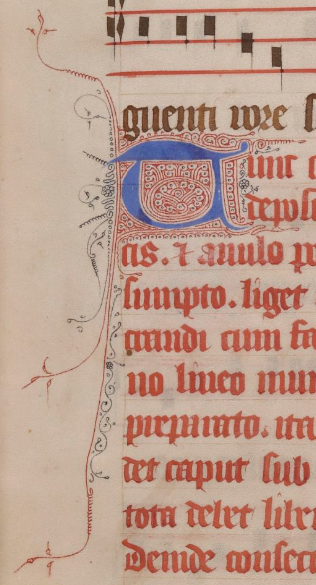 guenti more s
Tunc
deposi
tis. & anulo
sumpto. liget
crandi cum
no lineo mun
preparato. ita
tet caput sub
tota delet liber
Deinde consecr